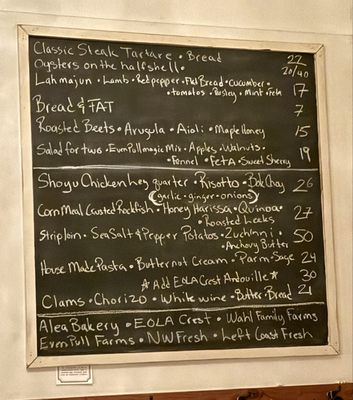 Classic Steak Tartare • Bread 22
Oysters on the half shell • 20/40
Lahmajun • Lamb • Red pepper • Flat Bread • cucumber •
• tomatos • Parsley • Mint • Feta 17
Bread & FAT 7
Roasted Beets • Arugula • Aioli • Maple Honey 15
Salad for two • Even Pull magic Mix • Apples • Walnuts •
• Fennel • Feta • Sweet Sherry 19
Shoyu Chicken leg quarter • Risotto • Bok Choy 26
(garlic • ginger • onions)
Corn Meal Crusted Rockfish • Honey Harissa • Quinoa • 27
• Roasted Leeks
Striploin • Sea Salt & Pepper Potatos • Zuchinni • 50
• Anchovy Butter
House Made Pasta • Butternut Cream • Parm • Sage 24
☆ Add EOLA Crest Andouille ☆ 30
Clams • Chorizo • White wine • Butter • Bread 21
Alea Bakery • EOLA Crest • Wahl Family Farms
Even Pull Farms • NW Fresh • Left Coast Fresh